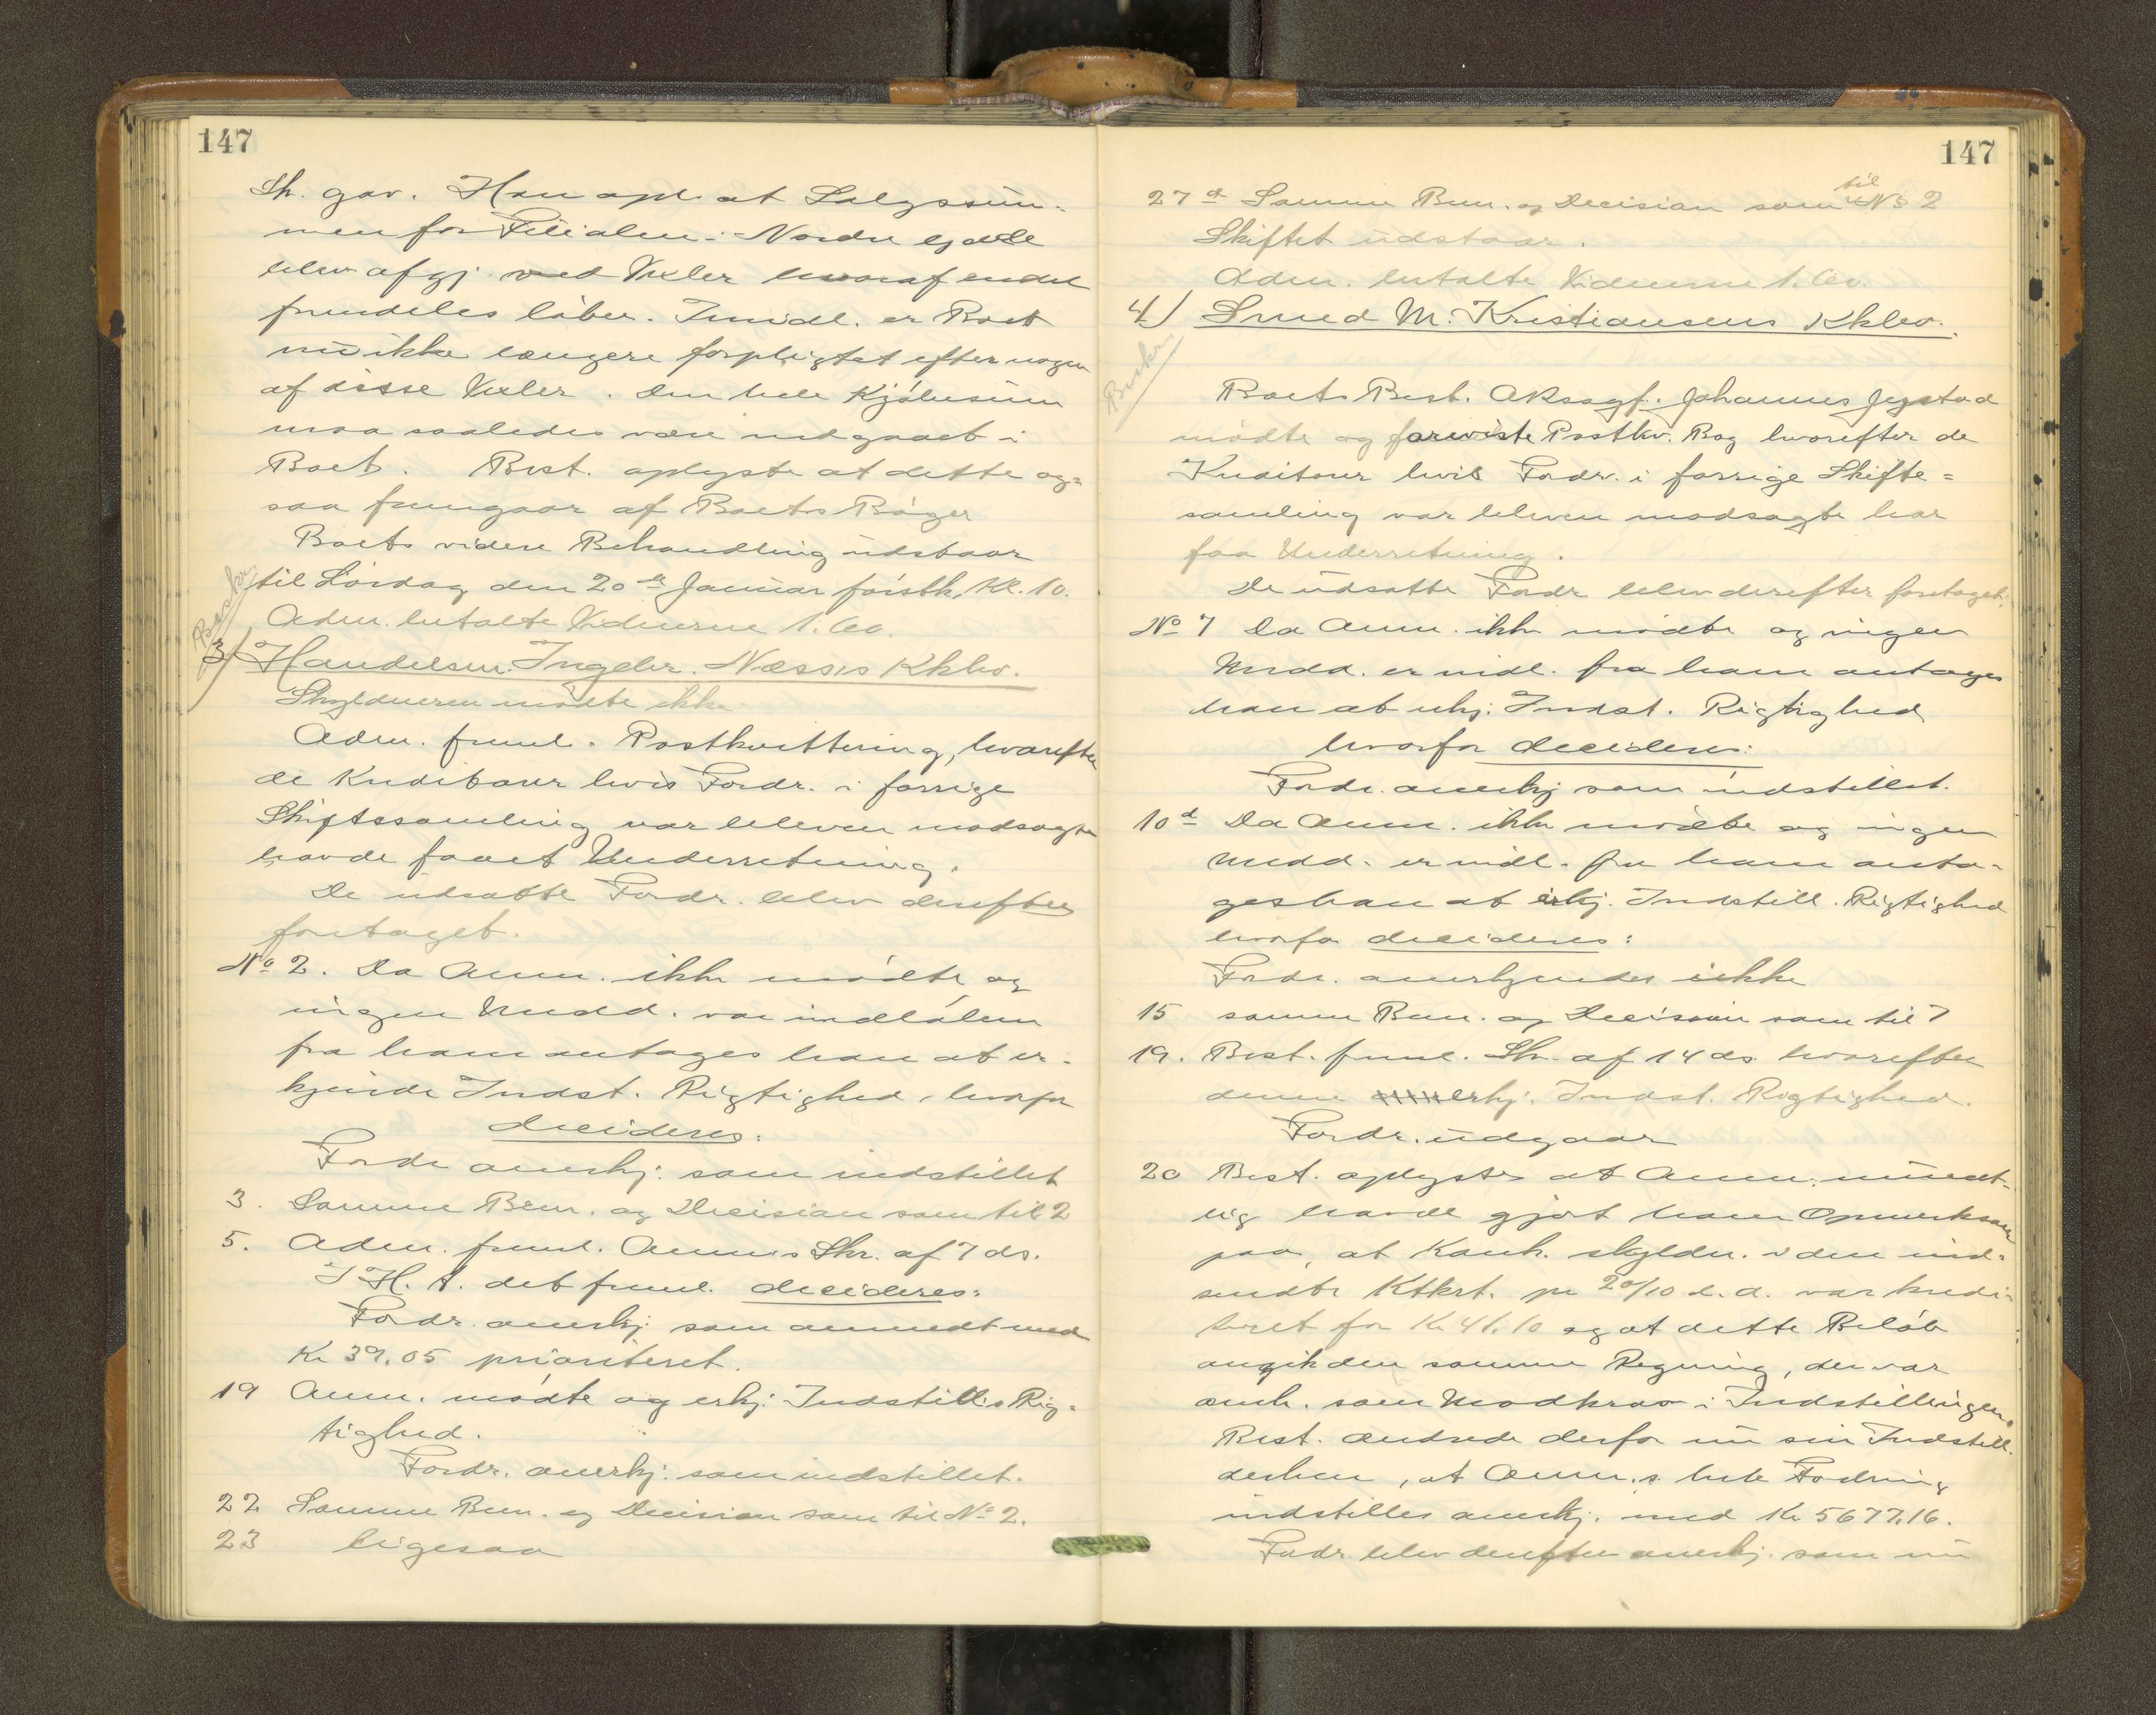 147
Sk. gav. Han opl. at Salgssum-
men for Filialen i Nordre
blev afgj. ved Vexler hvoraf endel
fremdeles löber. Imidl. er Boet
nu ikke længere forpligtet efter nogen
af disse Vexler. Den hele Kjöbesum
maa saaledes være indgaaet i
Boet. Best. oplyste at dette og-
saa fremgaar af Boets Böger
Boets videre Behandling udstaar
til Lördag den 20de Januar förstk. Kl. 10.
Adm. betalte Vidnerne 1.60.
Beskr.
3/ Handelsm. Ingebr. Næsses Kkbo.
Skyldneren mödte ikke
Adm. freml. Postkvittering, hvorefter
de Kreditorer hvis Fordr. i forrige
Skiftssamling var bleven modsagte
havde faaet Underretning.
De udsatte Fordr. blev derefter
foretaget.
No 2. Da Anm. ikke mödte og
ingen Medd. var indlöben
fra ham antages han at er-
kjende Indst. Rigtighed, hvorfor
decideres:
Fordr anerkj. som indstillet
3. Samme Bem. og Decision som til 2
5. Adm. freml. Anm.s Skr. af 7 ds.
I H. t. det freml. decideres:
Fordr. anerkj. som anmeldt med
Kr 39.05 prioriteret.
19 Anm. mödte og erkj. Indstill.s Rig-
tighed.
Fordr. anerkj. som indstillet.
22 Samme Bem. og Decision som til No 2.
23 ligesaa
147
27 d Samme Bem. og Decision som til No 2
Skiftet udstaar.
Adm. betalte Vidnerne 1.60.
4/ Smed M. Kristiansens Kkbo.
Beskr.
Boets Best. Oksagf. Johannes Jystad
mödte og foreviste Postkv. Bog hvorefter de
Kreditorer hvis Fordr. i forrige Skifte-
samling var bleven modsagte har
faa Underretning.
De udsatte Fordr blev derefter foretaget:
No 7 Da Anm. ikke mödte og ingen
Medd. er indl. fra ham antages
han at erkj. Indst. Rigtighed
hvorfor decideres:
Fordr. anerkj som indstillet.
10 d Da Anm. ikke mödte og ingen
Medd. er indl. fra ham anta-
ges han at erkj. Indstill. Rigtighed
hvorfor decideres:
Fordr. anerkjendes ikke
15 samme Bem. og Decision som til 7
19. Best. freml. Skr. af 14 ds. hvorefter
denne erkj. Indst. Rigtighed.
Fordr. udgaar
20 Best. oplyste at Anm. mundt-
lig havde gjort ham Opmerksom
paa, at Konk. skyldn. i den ind-
sendte Ktkrt. pr 20/10 d. a. var kredi-
teret for Kr 41.10 og at dette Belöb
angik den samme Regning, der var
omh. som Modkrav i Indstillingen.
Best. ændrede derfor nu sin Indstill.
derhen, at Anm.s hele Fordring
indstilles anerkj. med Kr 5677.16.
Fordr. blev derefter anerkj. som nu